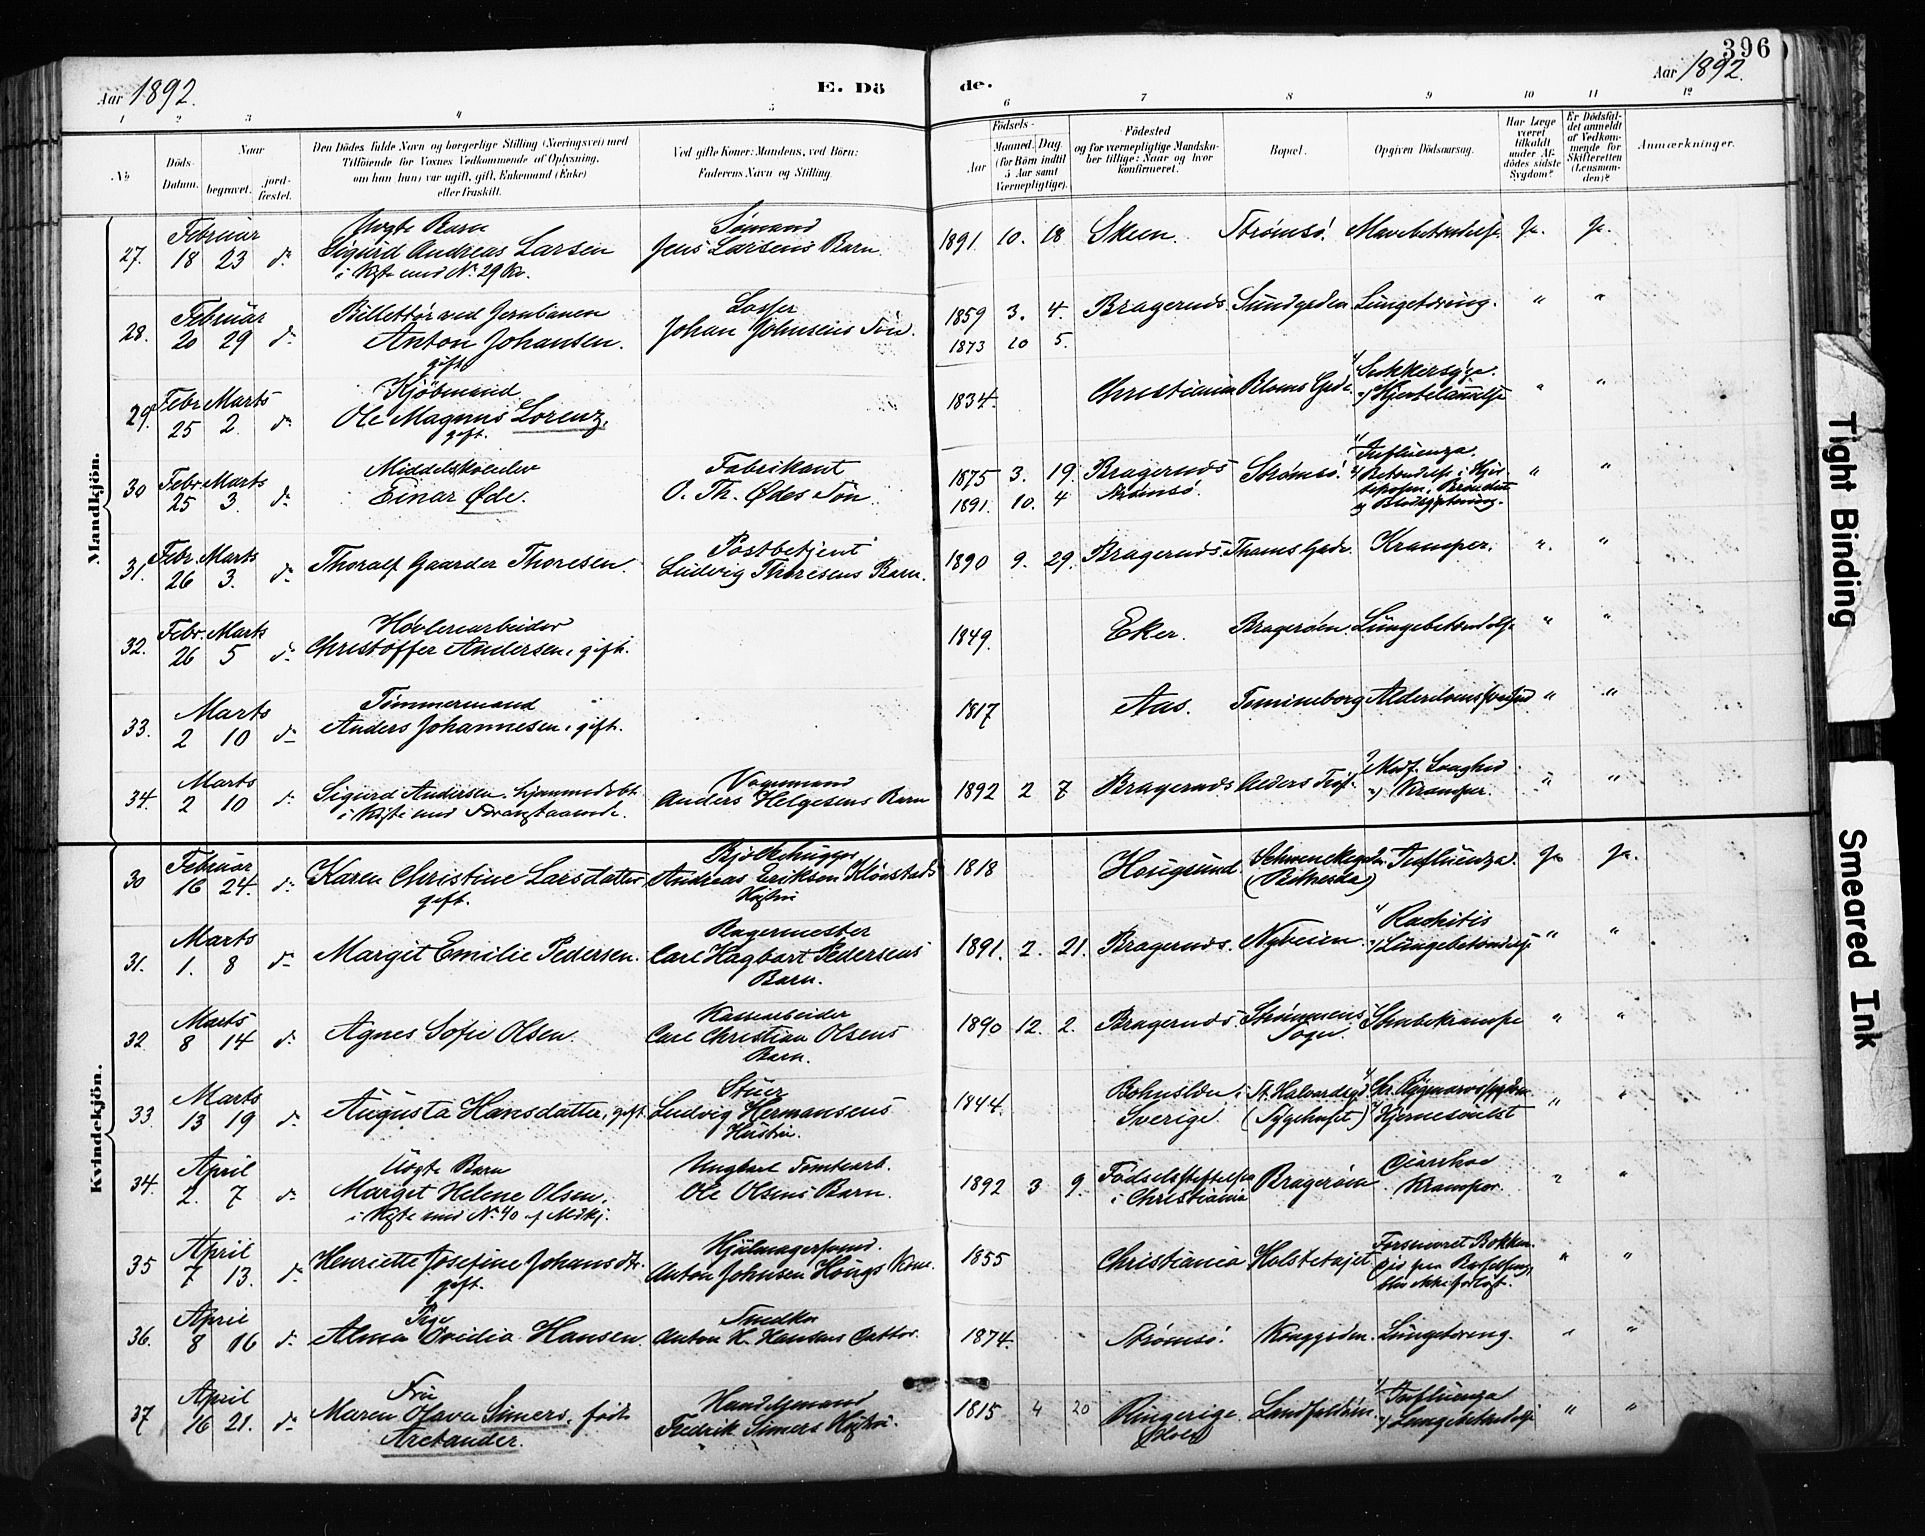 396
Aar 1892.
E. Dö
de.
Aar 1892.
1 2 3 4 5 6 7 8 9 10 11 12
No
Döds-
Datum.
Naar
begravet.
jord-
fæstet.
Den Dödes fulde Navn og borgerlige Stilling (Næringsvei) med
Tilföiende for Voxnes Vedkommende af Oplysning,
om han (hun) var ugift, gift, Enkemand (Enke)
eller fraskilt.
Ved gifte Koner: Mandens, ved Börn:
Faderens Navn og Stilling.
Födsels-
Aar
Maaned. Dag.
(for Börn indtil
5 Aar samt
Værnepligtige).
Födested
og for værnepligtige Mandska-
ber tillige: Naar og hvor
konfirmeret.
Bopæl.
Opgiven Dödsaarsag.
Har Læge
været
tilkaldt
under Af-
dödes sidste
Sygdom?
Er Dödsfal-
det anmeldt
af Vedkom-
mende for
Skifteretten
(Lensman-
den)?
Anmærkninger.
Mandkjön.
27. Februar 18 23 do
Uægte Barn
Sigurd Andreas Larsen
i Kiste med No 29 Kv.
Sömand
Jens Larsens Barn.
1891. 10. 18 Skeen. Strømsö. Mavebetændelse Ja. Ja.
28. Februar 20 29 do
Billettör ved Jernbanen
Anton Johansen.
gift
Losser
Johan Johnsens Sön.
1859 3. 4. Bragernæs Sundgaden Lungetæring. " "
1873 10 5.
29. Febr. 25 Marts 2. do
Kjöbmand
Ole Magnus Lorenz,
gift.
1834. Christiania Bloms Gade. Sukkersyge.
Hjertelammelse " "
30 Febr. 25 Marts 3. do
Middelskoleelev
Einar Øde.
Fabrikant
O. Th. Ødes Sön
1875 3. 19. Bragernæs Strømsö. Influenza.
1891. 10. 4 Strömsö.
Betændelse i
" "
31. Febr. 26 Marts 3. do
Thoralf Gaarder Thoresen.
Postbetjent
Ludvig Thoresens Barn.
1890 9. 29. Bragernæs Thams Gade. Kramper. " "
32. Febr. 26 Marts 5 do
Høvleriarbeider
Christoffer Andersen, gift.
1849. Eker. Bragerøen. Lungebetændelse " "
33. Marts 2 10 do
Tömmermand
Anders Johannesen, gift.
1817 Aas. Tomineborg Alderdomssvaghed " "
34. Marts 2 10 do
Sigurd Andersen. hjemmedöbt
i Kiste med
Vognmand
Anders Helgesens Barn
1892 2 7 Bragernæs Medf. Svaghed
Kramper. " "
Kvindekjön.
30 Februar 16 24. do
Karen Christine Larsdatter,
gift.
Andreas Eriksen
Hustru
1818 Hougsund. Influenza. Ja Ja.
31. Marts 1. 8 do
Margit Emilie Pedersen.
Bagermester
Carl Hagbart Pedersens
Barn.
1891. 2. 21. Bragernæs. Nyveien. Rachitis
Lungebetændelse " "
32. Marts 8 14 do
Agnes Sofie Olsen.
Carl Christian Olsens
Barn.
1890 12. 2. Bragernæs. Strømmens
Sogn. Strubekrampe " "
33. Marts 13 19 do
Augusta Hansdatter, gift.
Stuer
Ludvig Hermansens
Hustru.
1844. Bohuslän i
Sverige. (Sygehuset) Hjernesvulst " "
34. April 2. 7 do
Uægte Barn
Marget Helene Olsen.
i Kiste med No 40 af Mdkj.
Ungkarl Tomtearb.
Ole Olsens Barn.
1892 3 9. Födselsstiftelsen
i Christiania Bragerøen Diarrhoe
Kramper. " "
35 April 7 13. do
Henriette Josefine Johansdtr.
gift.
Anton Johnsen Hougs Kone.
1855 Christiania " "
36. April 8 16 do
Pige
Alma Ovidia Hansen.
Smed
Anton H. Hansens Datter
1874. Strømsö. Lungetæring. " "
37 April 16 21. do
Fru
Maren Olava Simers, födt
Arctander.
Handelsmand
Fredrik Simers Hustru.
1815 4 20 Ringerige
(Hole) Landfaldöen Influenza
Lungebetændelse " "
Tight Binding
Smeared Ink